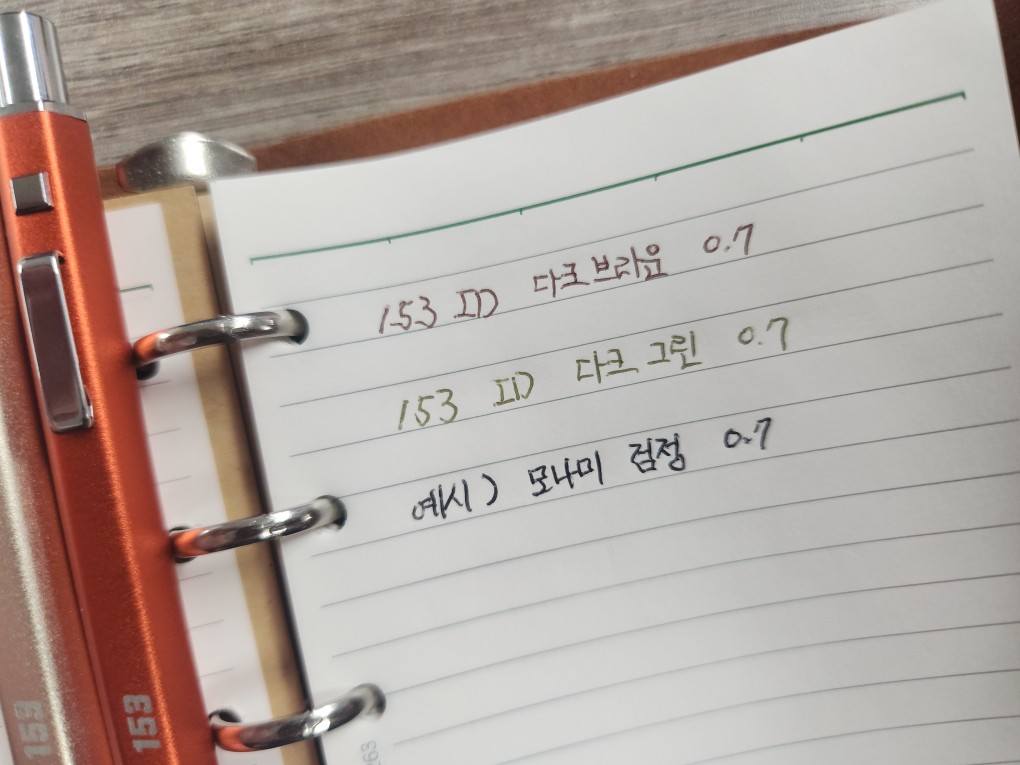 153 ID 다크브라운 0.7
153 ID 다크그린 0.7
예시) 모나미 검정 0.7
153
153